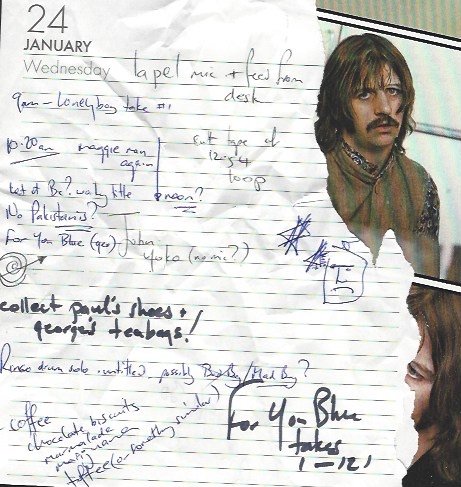 24
JANUARY
Wednesday lapel mic + feed from
desk
9am - Lonelyboy take #1
10.20am maggie mae
again
cut tape at
12.54
loop
Let it Be? waiting little
noon?
No Pakistanis?
For You Blue (geo) - John
Yoko (no mic?)
collect paul's shoes +
george's teabags!
Ringo drum solo - untitled - possibly Bad Boy / Mad Boy?
- coffee
chocolate biscuits
marmalade
toffee (or something similar)
For You Blue
takes
1-12!